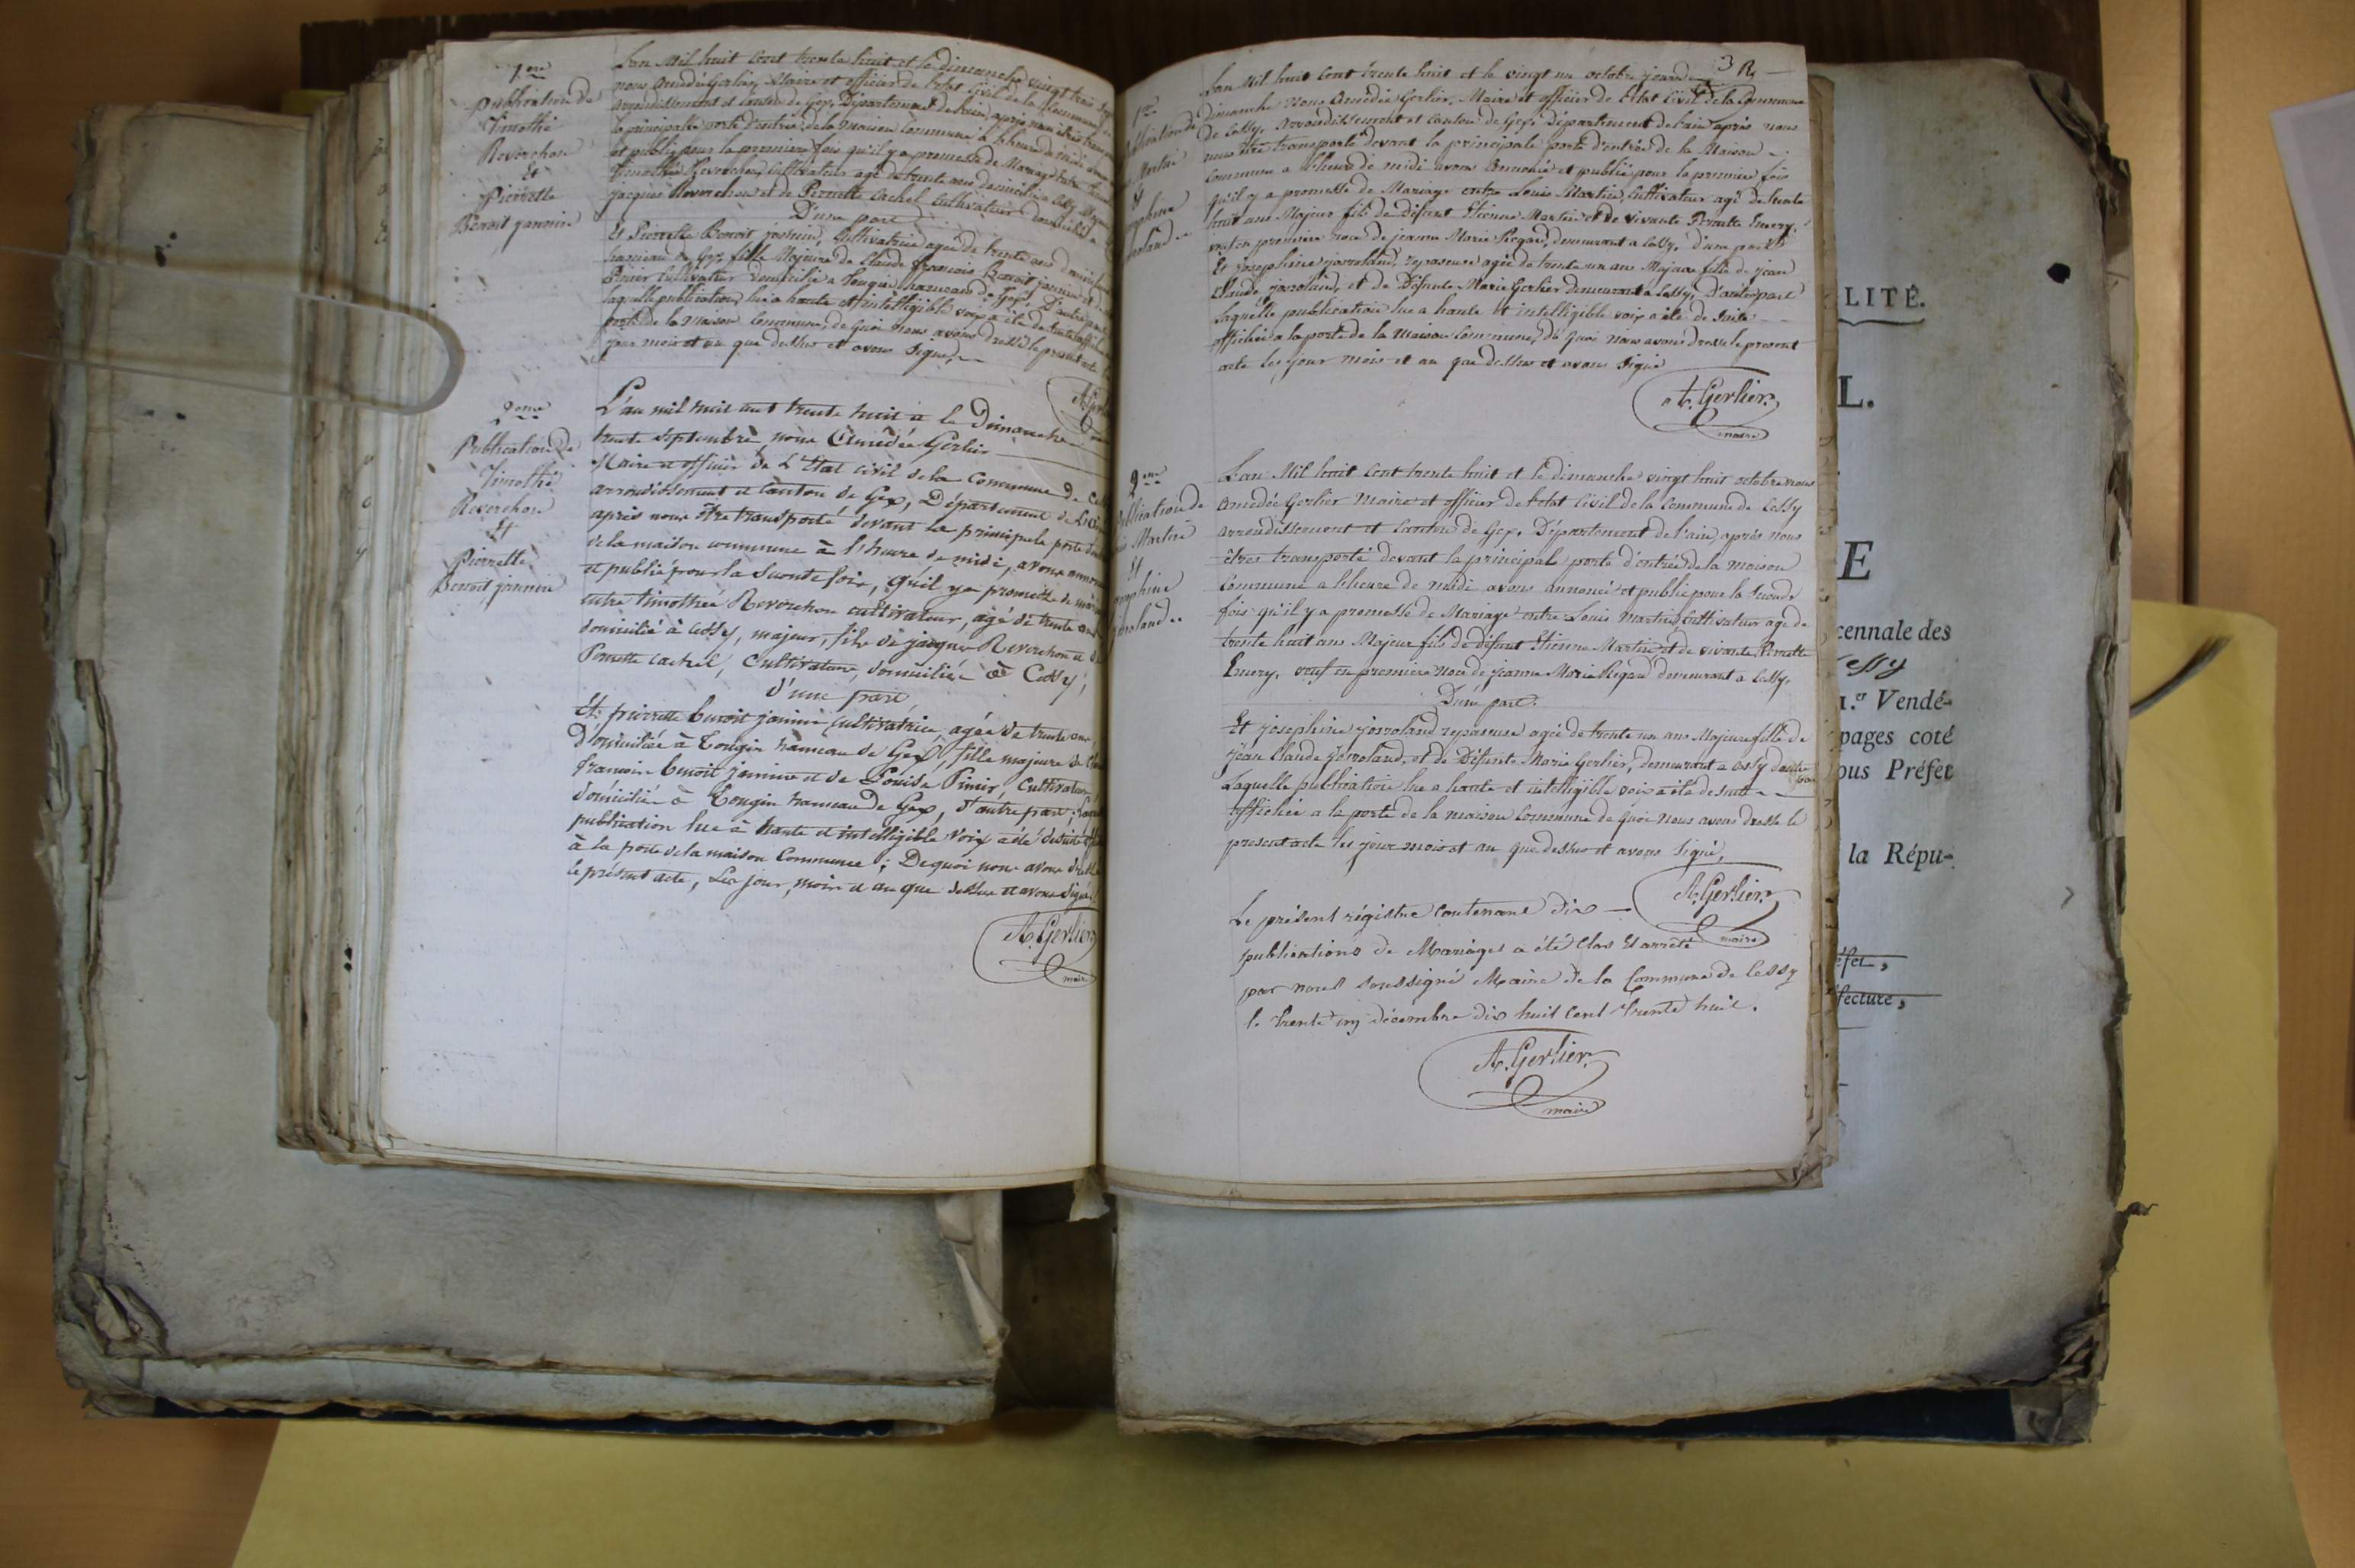 1ere
Publication de
Timothé
Reverchon
Et
Pierrette
Benoit jannin
L'an Mil huit Cent trente huit et le dimanche vingt trois
nous Amédé Gerlier, Maire et officier de l'etat Civil de la Commune de
arrondissement et Canton de Gex, Département de l'ain, après nous être
la principalle porte d'entrée de la Maison Commune à l'heure de midi avons
et publié pour la premiere fois qu'il y a promesse de Mariage entre
Timothée Reverchon, Cultivateur agé de trente ans domicilié a Cessy
jacques Reverchon et de Pernette Cachel Cultivateurs domiciliés a
D'une part
Et Pierrette Benoit jannin, Cultivatrice agée de trente ans
hameau de Gex, fille Majeure de Claude françois Benoit jannin et de
Pinier Cultivateur domicilié a Tougin hameau de Gex, D'autre part
laquelle publication lue a haute et intelligible voix a été de suite affichée
porte de la Maison Commune, de quoi nous avons dressé le present acte
jour mois et an que dessus et avons signé,
A. Gerlier
maire
2eme
Publication de
Timothé
Reverchon
Et
Pierrette
Benoit jannin
L'an mil huit cent trente huit et le Dimanche
trente septembre, nous Amédée Gerlier
Maire et officier de L'Etat civil de la Commune de
arrondissement et Canton de Gex, Département de L'ain
après nous être transporté devant la principale porte
de la maison commune à l'heure de midi, avons annoncé
et publié pour la seconde fois, qu'il y a promesse de
entre timothée Reverchon cultivateur, agé de trente ans
domicilié à Cessy, majeur, fils de jacques Reverchon et de
Pernette Cachel, Cultivateurs, domiciliés à Cessy,
d'une part
Et pierrette benoit jannin cultivatrice, agée de trente ans,
Domiciliée à Tougin hameau de Gex, fille majeure de
françois benoit jannin et de Louise Pinier, Cultivateurs
domiciliés à Tougin hameau de Gex, d'autre part;
publication lue à haute et intelligible voix a été de suite
à la porte de la maison Commune; De quoi nous avons dressé
le présent acte, Les jour, mois et an que dessus et avons signé.
A. Gerlier
maire
3 R
1ere
Martin
Et
L'an Mil huit Cent trente huit et le vingt un octobre jour de
dimanche Nous Amédée Gerlier, Maire et officier de l'Etat Civil de la Commune
de Cessy, Arrondissement et Canton de Gex, Département de l'ain après nous
nous être transporté devant la principale porte d'entrée de la Maison
Commune a l'heure de midi avons annoncé et publié pour la premiere fois
qu'il y a promesse de Mariage entre Louis Martin, Cultivateur agé de trente
huit ans Majeur fils de Défunt Etienne Martin et de vivante Pernette Emery,
veuf en premiere noce de jeanne Marie Regard, demeurant a Cessy, d'une part
Et josephine josroland, repaseuse agée de trente un ans Majeure fille de jean
Claude josroland, et de Défunte Marie Gerlier demeurant a Cessy, D'autre part
Laquelle publication lue a haute et intelligible voix a été de suite
affichée a la porte de la Maison Commune, de quoi nous avons dressé le present
acte les jour mois et an que dessus et avons signé
A. Gerlier
maire
2eme
publication de
Martin
Et
L'an Mil huit Cent trente huit et le dimanche vingt huit octobre nous
Amédée Gerlier Maire et officier de l'etat Civil de la Commune de Cessy
arrondissement et Canton de Gex, Département de l'ain, après nous
êtres transporté devant la principale porte d'entrée de la maison
Commune a l'heure de midi avons annoncé et publié pour la seconde
fois qu'il y a promesse de Mariage entre Louis Martin Cultivateur agé de
trente huit ans Majeur fils de Défunt Etienne Martin et de vivante Pernette
Emery, veuf en premiere Noce de jeanne Marie Regard demeurant a Cessy,
D'une part.
Et josephine josroland repaseuse agée de trente un ans Majeure fille de
jean Claude josroland, et de Défunte Marie Gerlier, demeurant a Cessy d'autre part
Laquelle publication lue a haute et intelligible voix a été de suite
affichée a la porte de la maison Commune de quoi nous avons dressé le
present acte les jour mois et an que dessus et avons signé,
A. Gerlier
maire
Le présent régistre contenant dix
publications de Mariages a été Clos et arrêté
par nous soussigné Maire de la Commune de Cessy
le trente un décembre dix huit Cent trente huit.
A. Gerlier
maire
LITÉ.
L.
E
cennale des
essy
1.er Vendé-
pages coté
ous Préfet
la Répu-
éfet,
fecture,